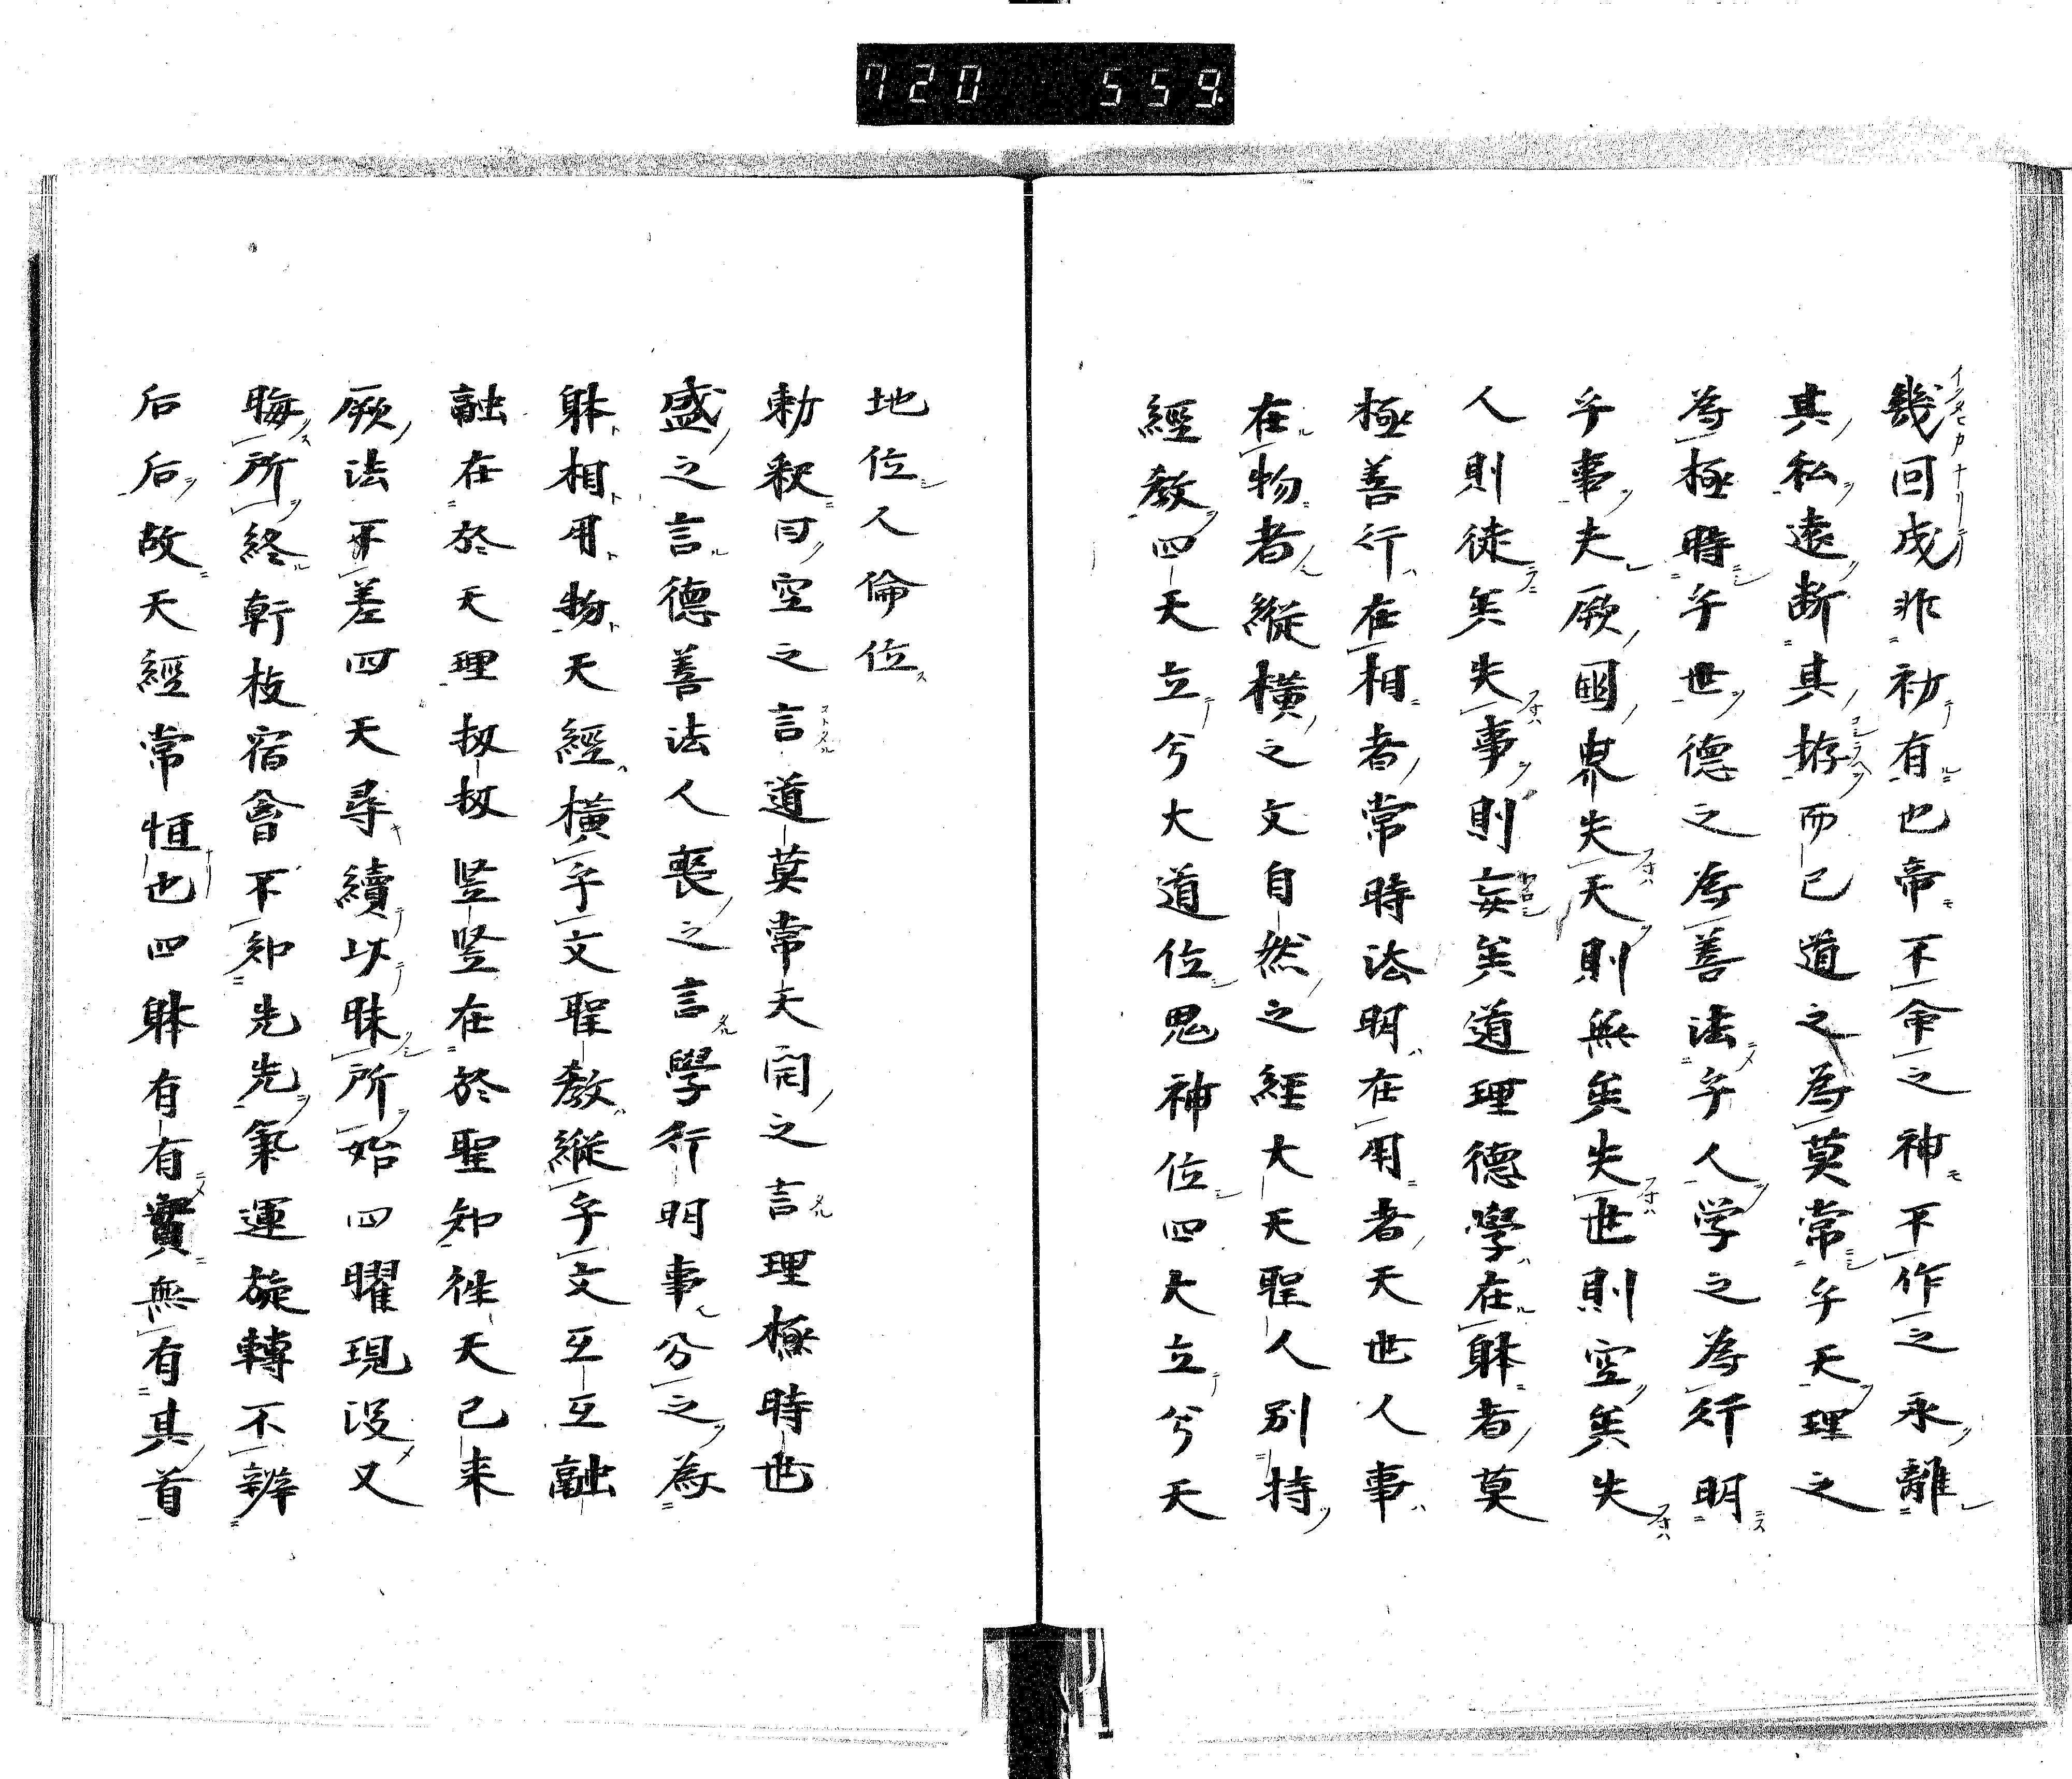 720 559
幾回成非初有也帝不命之神不作之永離
其私遠断其拵而已道之為莫常乎天理之
為極時乎世德之為善法乎人学之為行明
乎事夫厥國界失天則無矣失世則空矣失
人則徒矣失事則妄矣道理德學在躰者莫
極善行在相者常時法明在用者天世人事
在物者縱横之文自然之經大天聖人別持
經教四天立兮大道位鬼神位四大立兮天
地位人倫位
勅釈曰空之言道莫常天開之言理極時世
盛之言德善法人喪之言學行明事分之為
躰相用物天經横乎文聖教縱乎文互互融
融在於天理扠扠竪竪在於聖知徃天已来
厥法不差四天尋續以昧所始四曜現没又
晦所終斬枝宿會不知先先氣運旋轉不辨
后后故天經常恒也四躰有有實無有其首